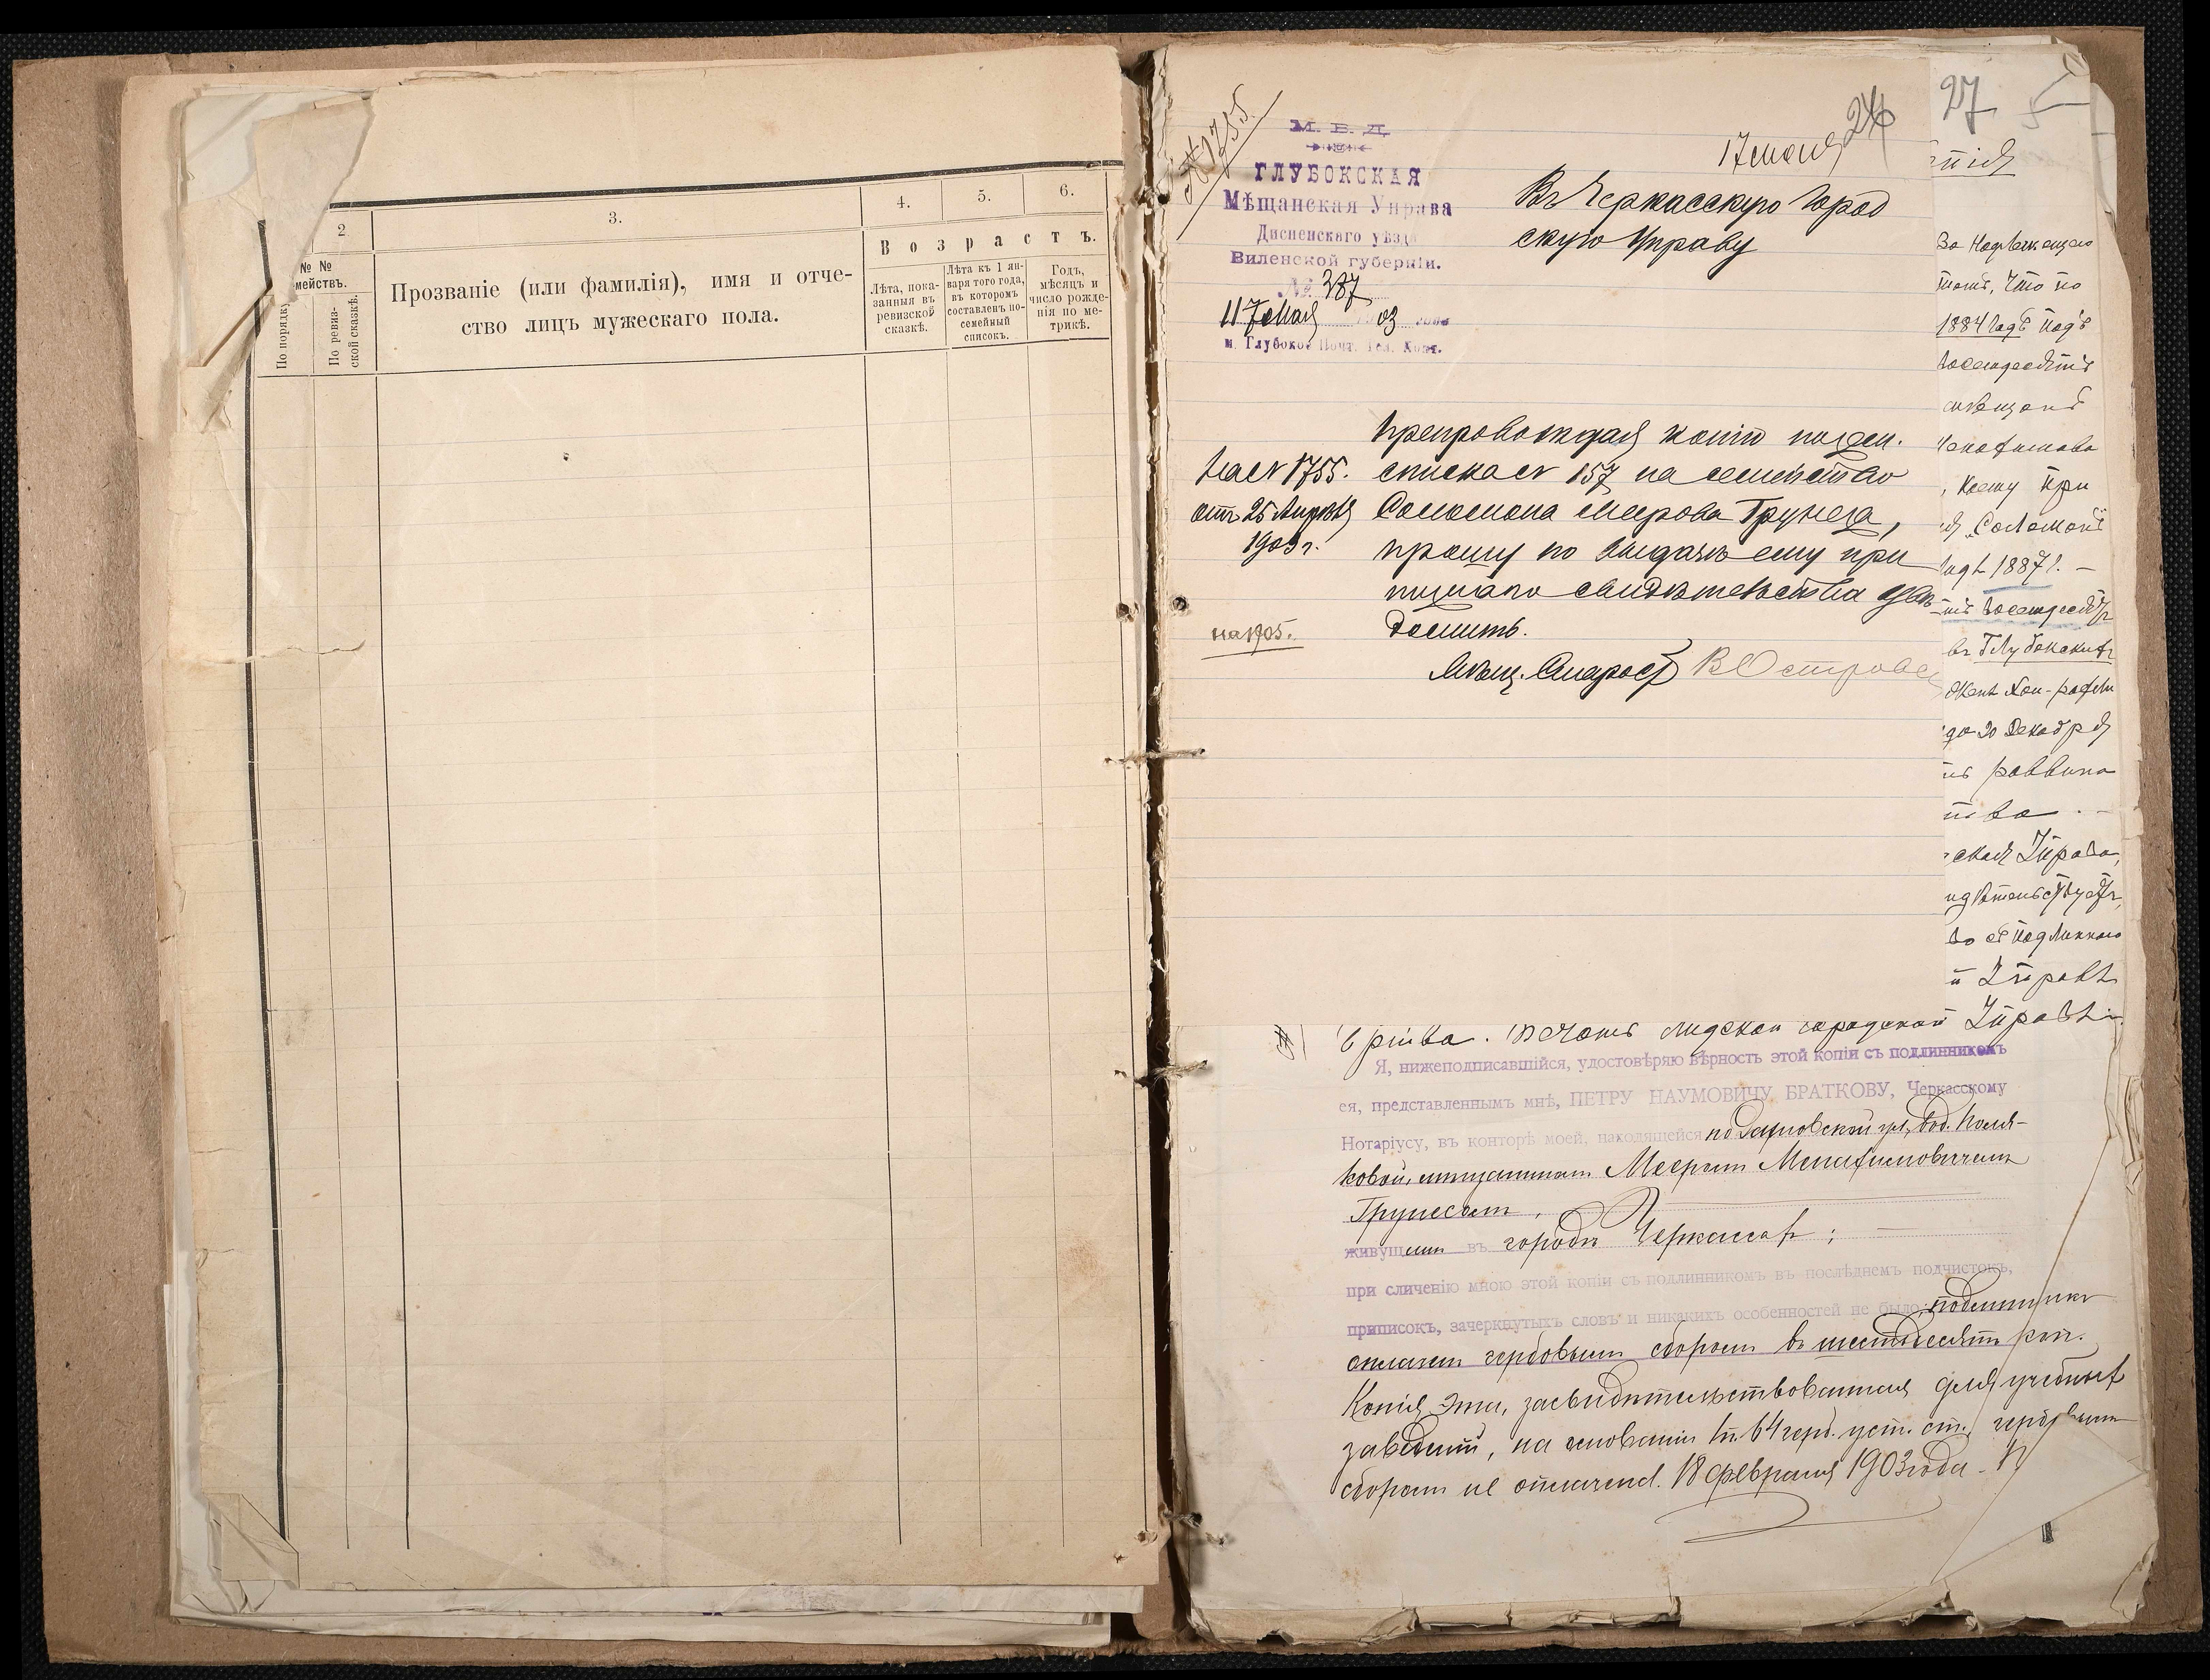 2
3.
4.
5.
6.
В о з р а с т ъ.
№ №
мействъ.
По порядку
По ревиз-
ской сказкѣ.
Прозваніе (или фамилія), имя и отче-
ство лицъ мужескаго пола.
Лѣта, пока-
занныя въ
ревизской
сказкѣ.
Лѣта къ 1 ян-
варя того года,
въ которомъ
составленъ по-
семейный
списокъ.
Годъ,
мѣсяцъ и
число рожде-
нія по ме-
трикѣ.
М. В. Д.
ГЛУБОКСКАЯ
Мѣщанская Управа
Дисненскаго уѣзда
Виленской губерніи.
№ 387
Мая 1903 года
м. Глубокое Почт. Тел. Конт.
17 июня
Въ Черкасскую Город
скую Управу
На № 1755.
отъ 25 Апрѣля
1903 г.
на 1905.
Препровождая копію посем.
списка № 157 на семейство
Соломона Меерова Грунеса,
прошу по выдачѣ ему при
писнаго свидѣтельства увѣ-
домить.
Мѣщ. Староста
27
5
За Надлежащаго
томъ, что по
1884 годъ подъ
восемдесятъ
мѣщанъ
Менахимова
, коему при
Соломонъ
годъ 1887 г. —
восемдесятъ
въ Глубокских
до 20 Декабря
раввина
тва . —
ская Управа,
идѣтельствуетъ,
во съ подлиннаго
й Управѣ
городской Управѣ.
Я, нижеподписавшійся, удостовѣряю вѣрность этой копіи съ подлинникомъ
ея, представленнымъ мнѣ, ПЕТРУ НАУМОВИЧУ БРАТКОВУ, Черкасскому
Нотаріусу, въ конторѣ моей, находящейся по ул., въ д. Поля-
ковой, мѣщаниномъ Мееромъ Менахимовичемъ
Грунесомъ,
живущимъ въ городѣ Черкассах;
при сличенію мною этой копіи съ подлинникомъ въ послѣднемъ подчистокъ,
приписокъ, зачеркнутыхъ словъ и никакихъ особенностей не было, подлинникъ
оплаченъ гербовымъ сборомъ въ шестьдесятъ коп.
Копія эта, засвидѣтельствованная для учебныхъ
заведеній, на основаніи п. 64 герб. уст. ст., гербовымъ
сборомъ не оплачена. 18 февраля 1903 года.